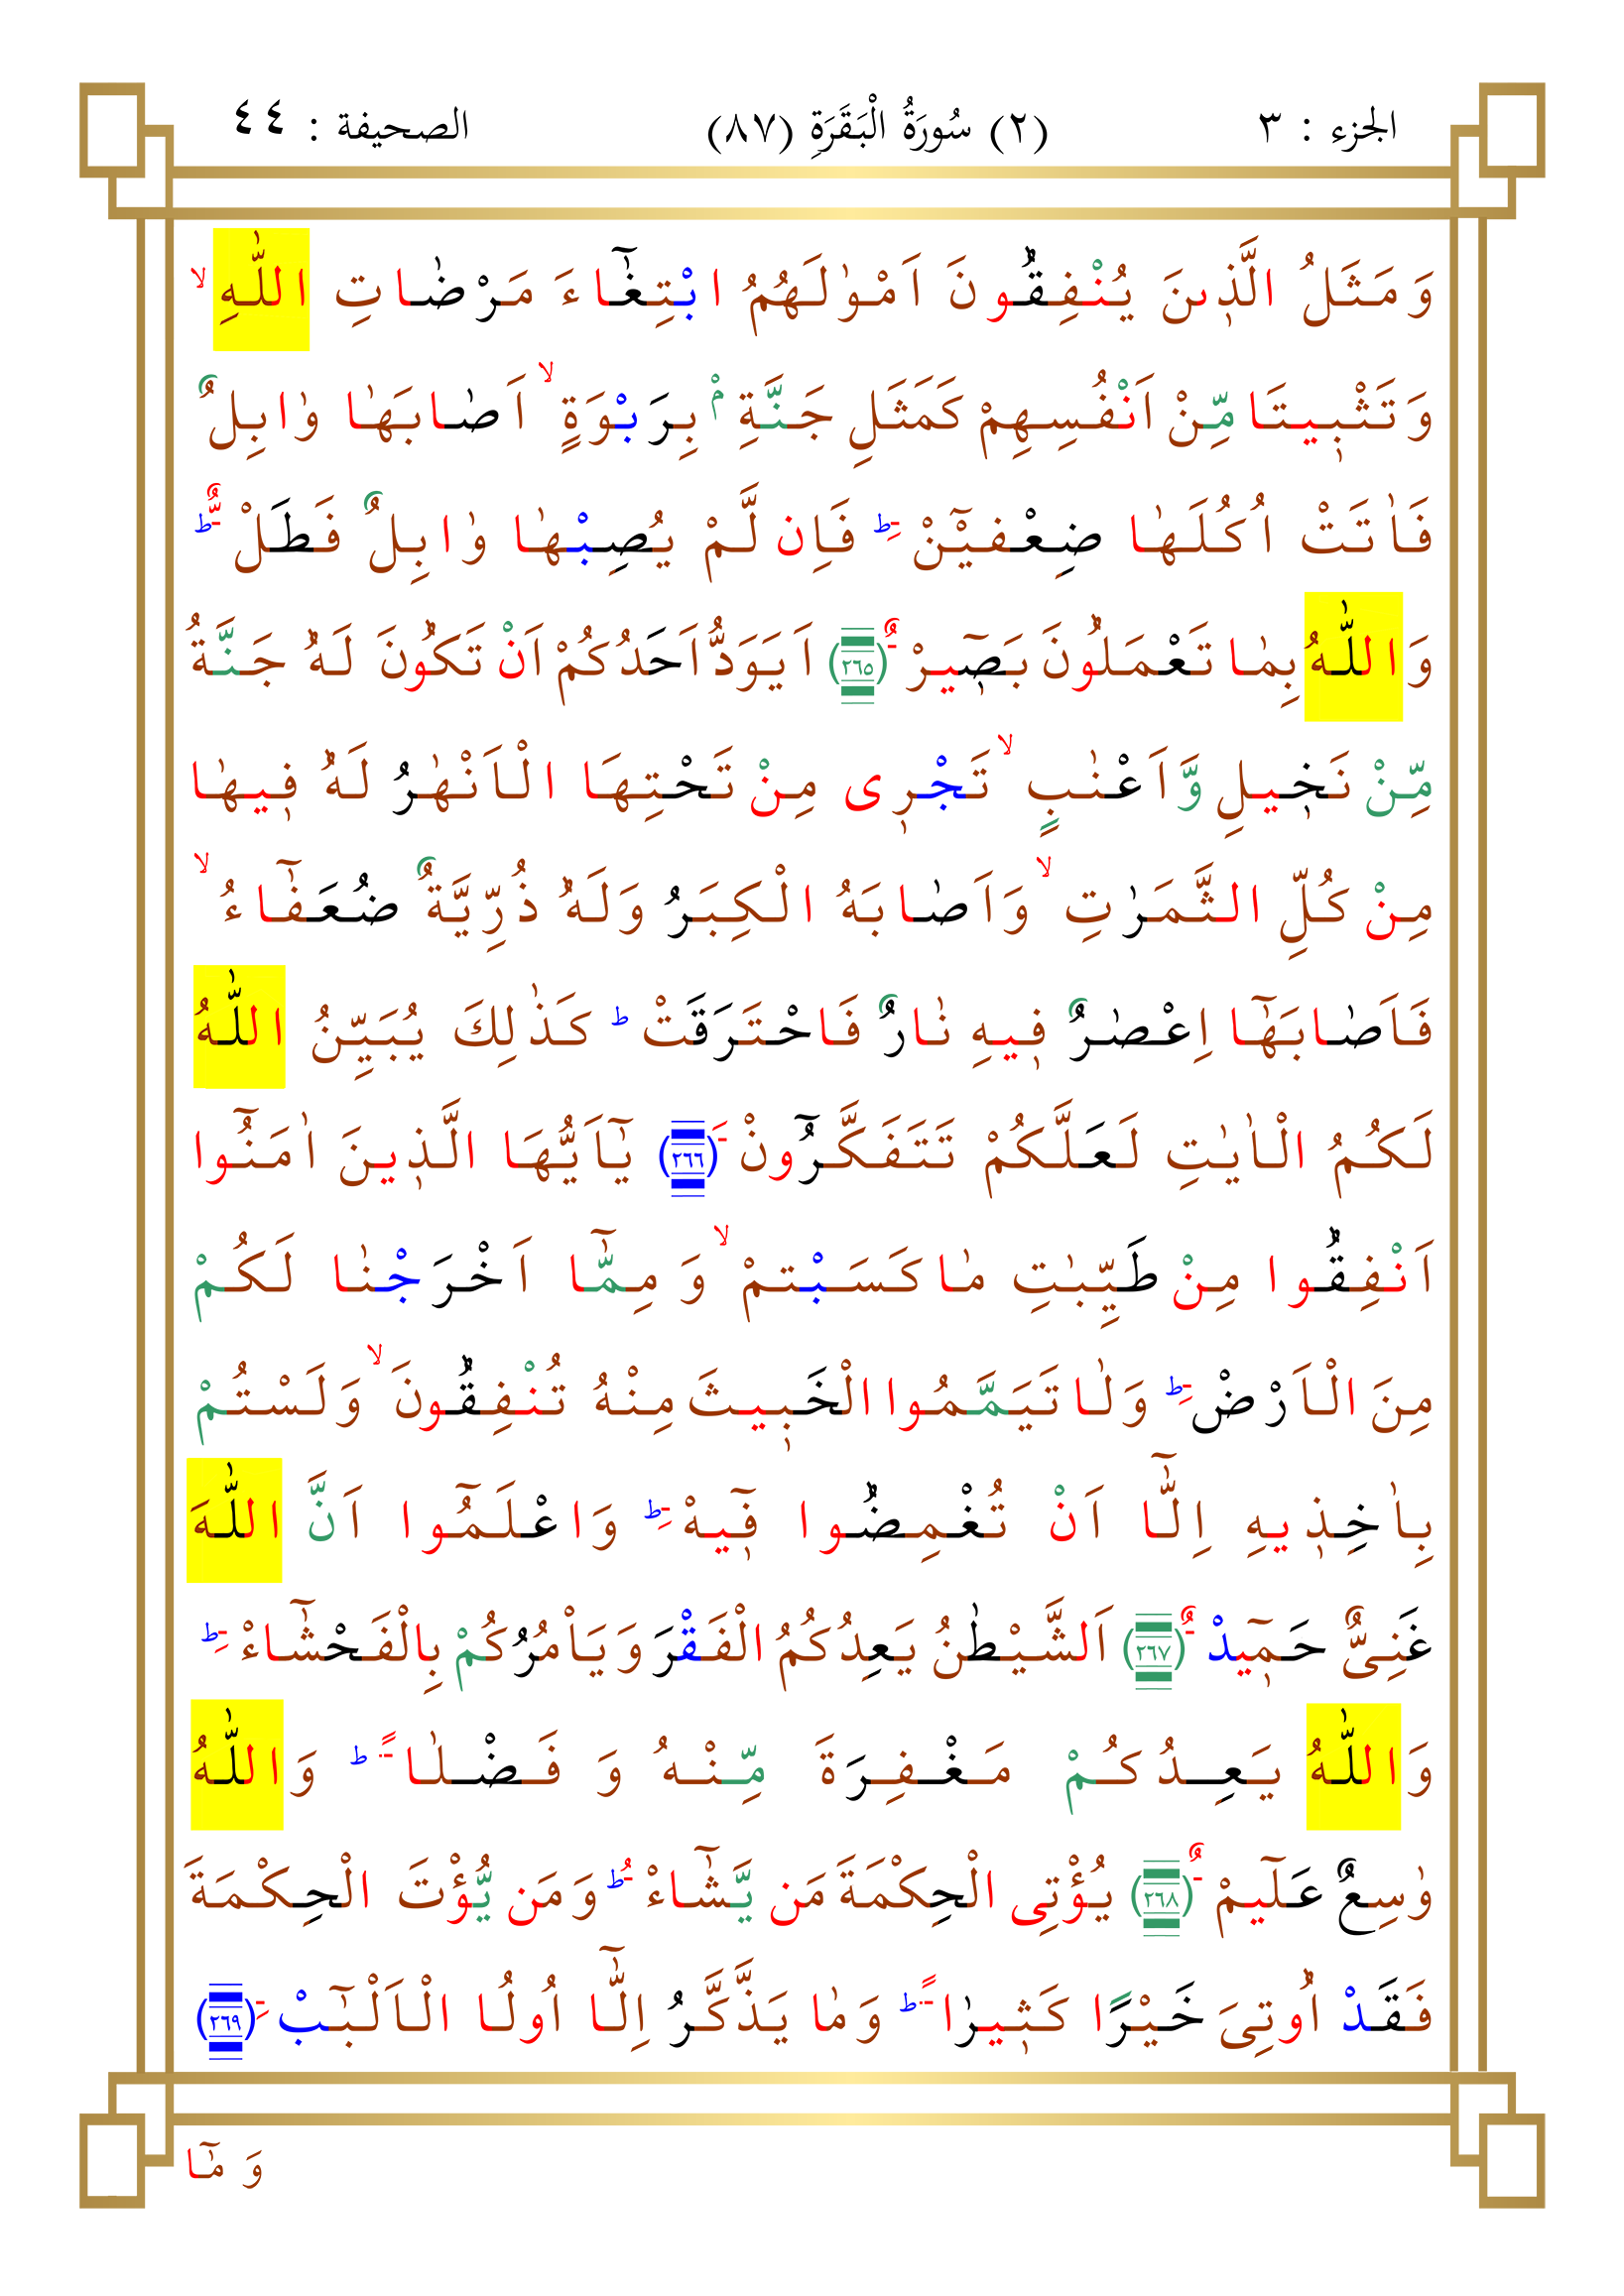 الجزء : ٣ (٢) سُورَةُ الْبَقَرَةِ (٨٧) الصحيفة : ٤٤
وَمَثَلُ الَّذٖينَ يُنْفِقُونَ اَمْوٰلَهُمُ ابْتِغَٓاءَ مَرْضَاتِ اللّٰهِ ۙ
وَتَثْبٖيتًا مِّنْ اَنْفُسِهِمْ كَمَثَلِ جَنَّةٍ ۢ بِرَبْوَةٍ ۙ اَصَابَهَا وٰابِلٌ
فَاٰتَتْ اُكُلَهَا ضِعْفَيْنْ ۚ ط فَاِن لَّمْ يُصِبْهَا وٰابِلٌ فَطَلْ ط
وَاللّٰهُ بِمٰا تَعْمَلُونَ بَصٖٓيرْ ﴿٢٦٥﴾ اَيَوَدُّ اَحَدُكُمْ اَنْ تَكُونَ لَهُ جَنَّةٌ
مِّنْ نَخٖيلٍ وَّاَعْنٰبٍ ۙ تَجْرٖى مِنْ تَحْتِهَا الْاَنْهٰرُ لَهُ فٖيهٰا
مِنْ كُلِّ الثَّمَرٰتِ ۙ وَاَصٰابَهُ الْكِبَرُ وَلَهُ ذُرِّيَّةٌ ضُعَفَٓاءُ ۙ
فَاَصٰابَهَٓا اِعْصٰرٌ فٖيهِ نٰارٌ فَاحْتَرَقَتْ ط كَذٰلِكَ يُبَيِّنُ اللّٰهُ
لَكُمُ الْاٰيٰتِ لَعَلَّكُمْ تَتَفَكَّرُٓونْ ﴿٢٦٦﴾ يَٓاَيُّهَا الَّذٖينَ اٰمَنُٓوا
اَنْفِقُوا مِنْ طَيِّبٰتِ مٰا كَسَبْتمْ ۙ وَمِمَّٓا اَخْرَجْنٰا لَكُمْ
مِنَ الْاَرْضْ ط وَلٰا تَيَمَّمُوا الْخَبٖيثَ مِنْهُ تُنْفِقُونَ ۙ وَلَسْتُمْ
بِاٰخِذٖيهِ اِلَّٓا اَنْ تُغْمِضُوا فٖٓيهْ ط وَاعْلَمُٓوا اَنَّ اللّٰهَ
غَنِىٌّ حَمٖٓيدْ ﴿٢٦٧﴾ اَلشَّيْطٰنُ يَعِدُكُمُ الْفَقْرَ وَيَاْمُرُكُمْ بِالْفَحْشَٓاءْ ط
وَاللّٰهُ يَعِدُكُمْ مَغْفِرَةً مِّنْهُ وَفَضْلٰا ط وَاللّٰهُ
وٰسِعٌ عَلٖٓيمْ ﴿٢٦٨﴾ يُؤْتِى الْحِكْمَةَ مَن يَّشَٓاءْ ط وَمَن يُّؤْتَ الْحِكْمَةَ
فَقَدْ اُوتِىَ خَيْرًا كَثٖيرٰا ط وَمٰا يَذَّكَّرُ اِلَّٓا اُولُا الْاَلْبَٓبْ ﴿٢٦٩﴾
وَمَٓا